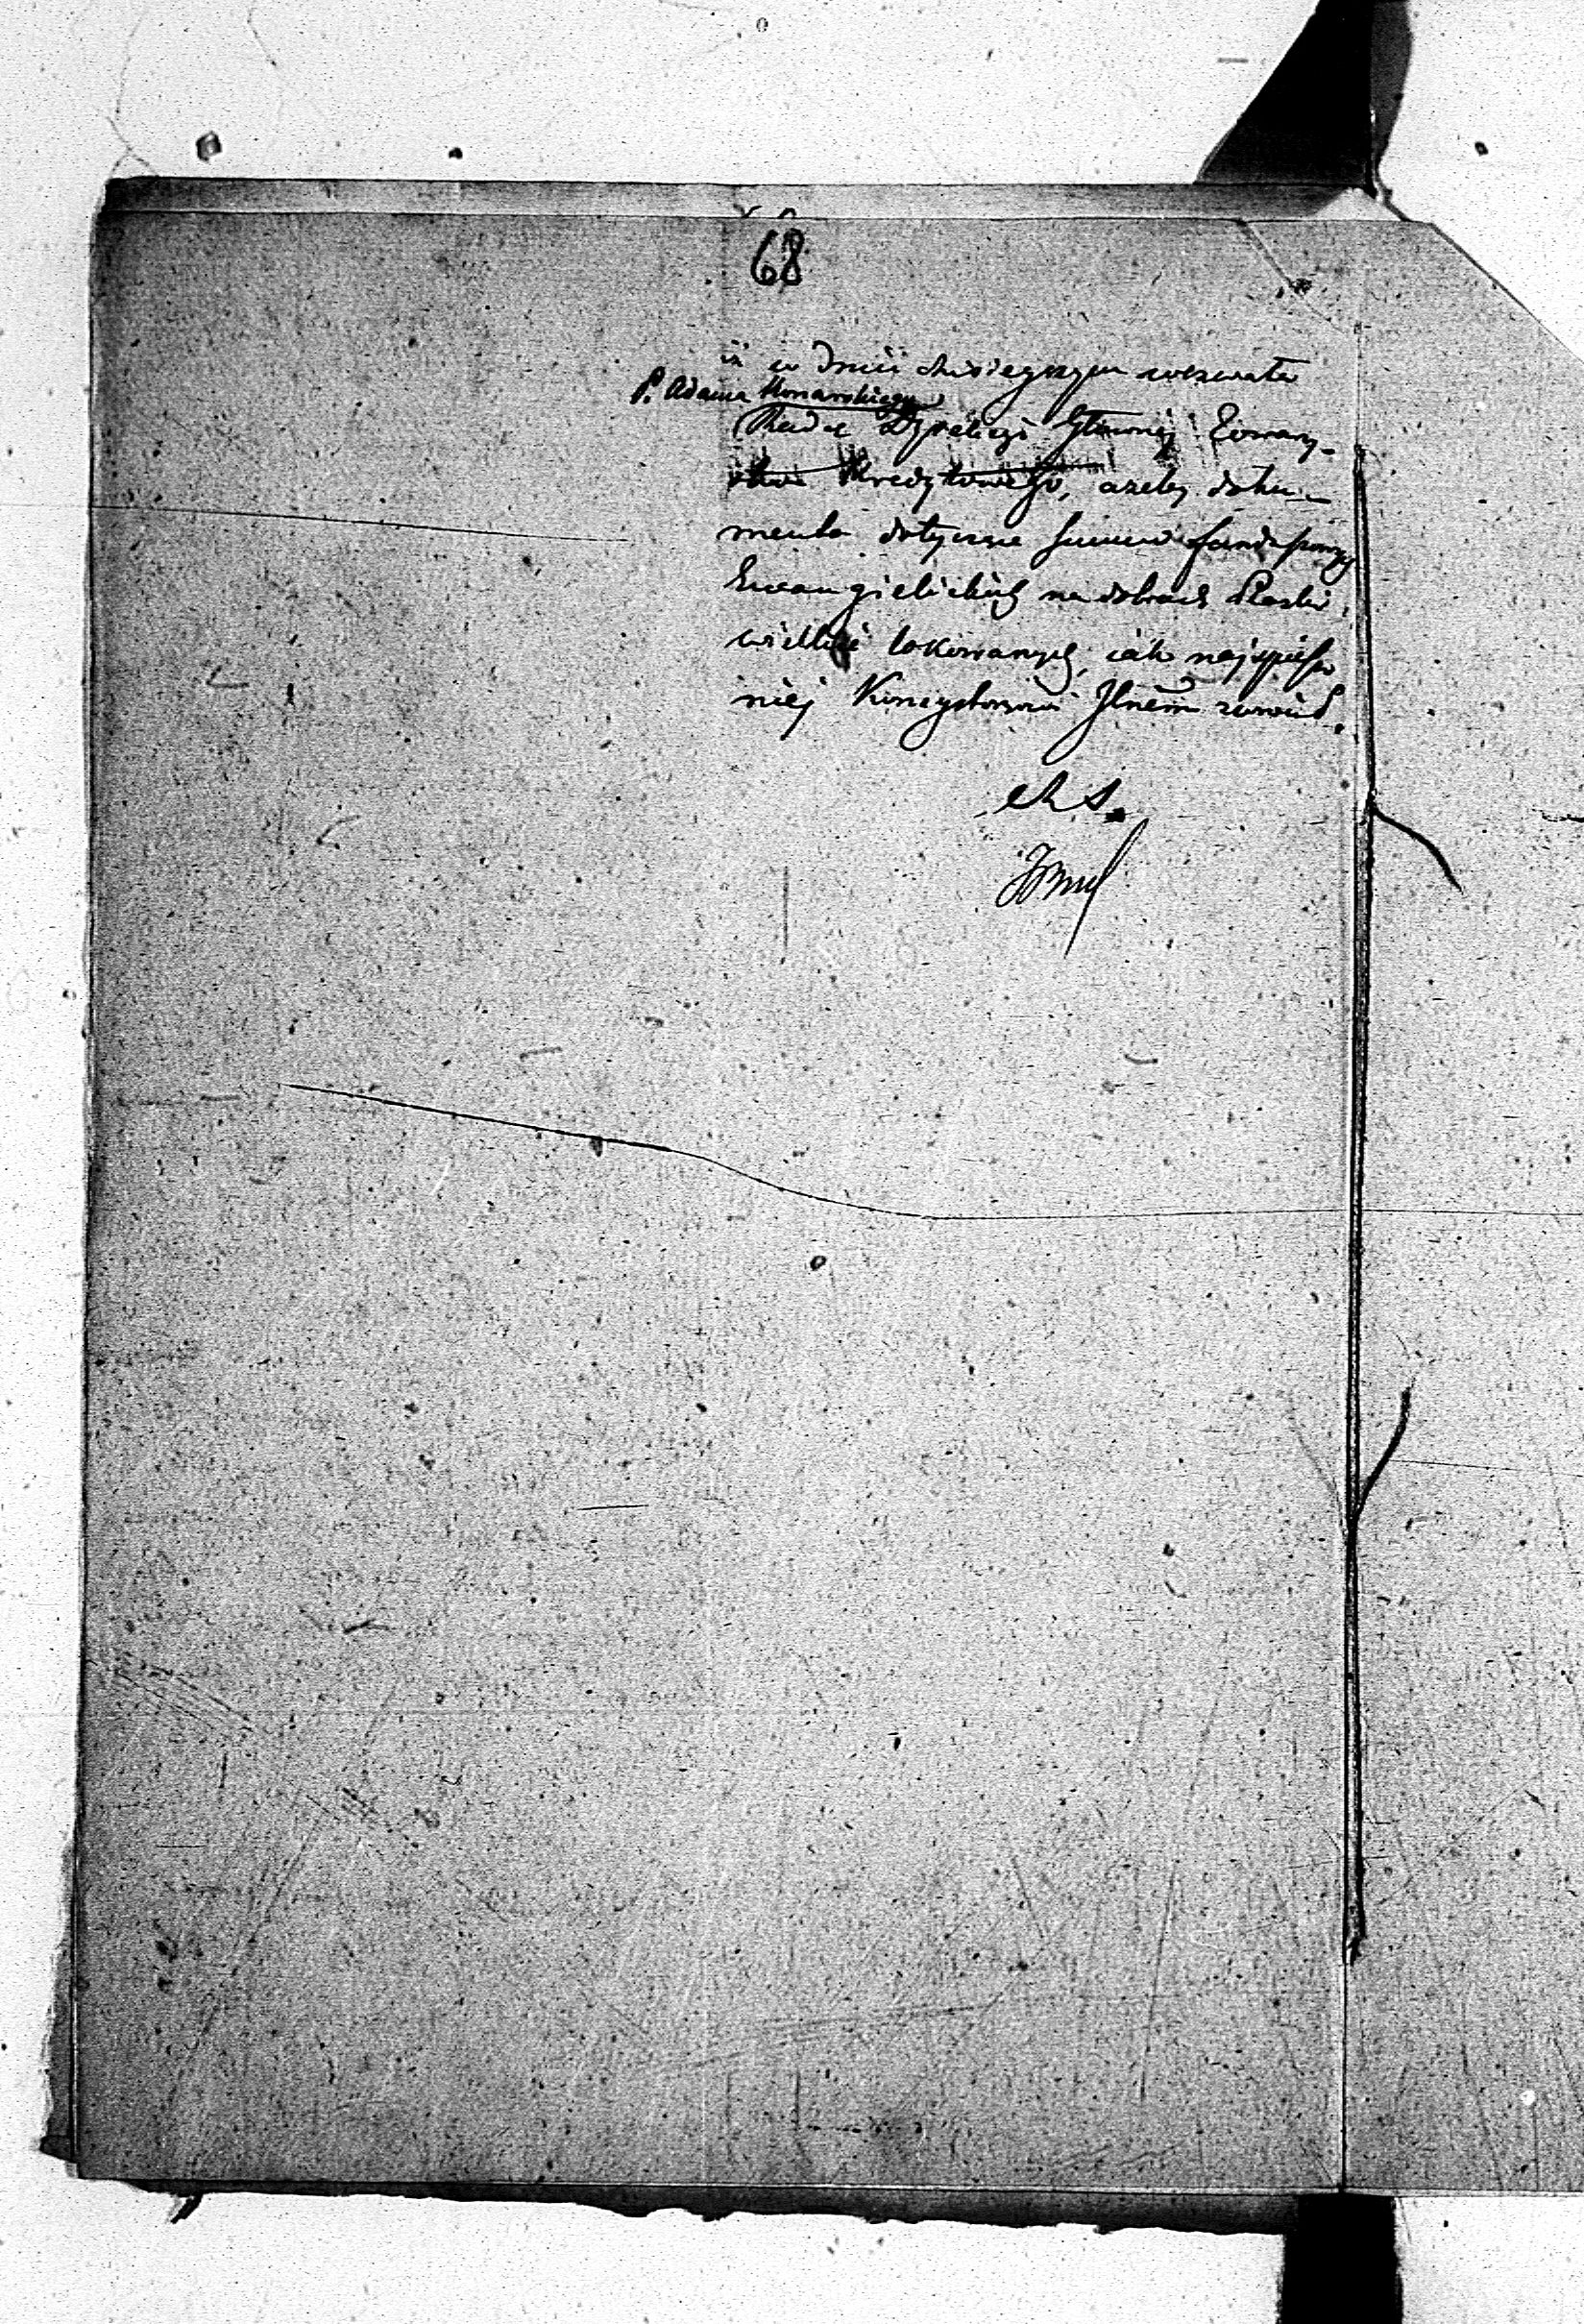 68
iż w dniu dzisiejszym wezwała
P. Adama Konarskiego
Radcę Dyrekcyi Głównej Towarzy-
stwa Kredytowego, ażeby doku-
menta dotyczące summ fundu
Ewangielickich na dobrach
wielkie lokowanych, iak najspiesz
niej Konsystorzowi zwrócił.